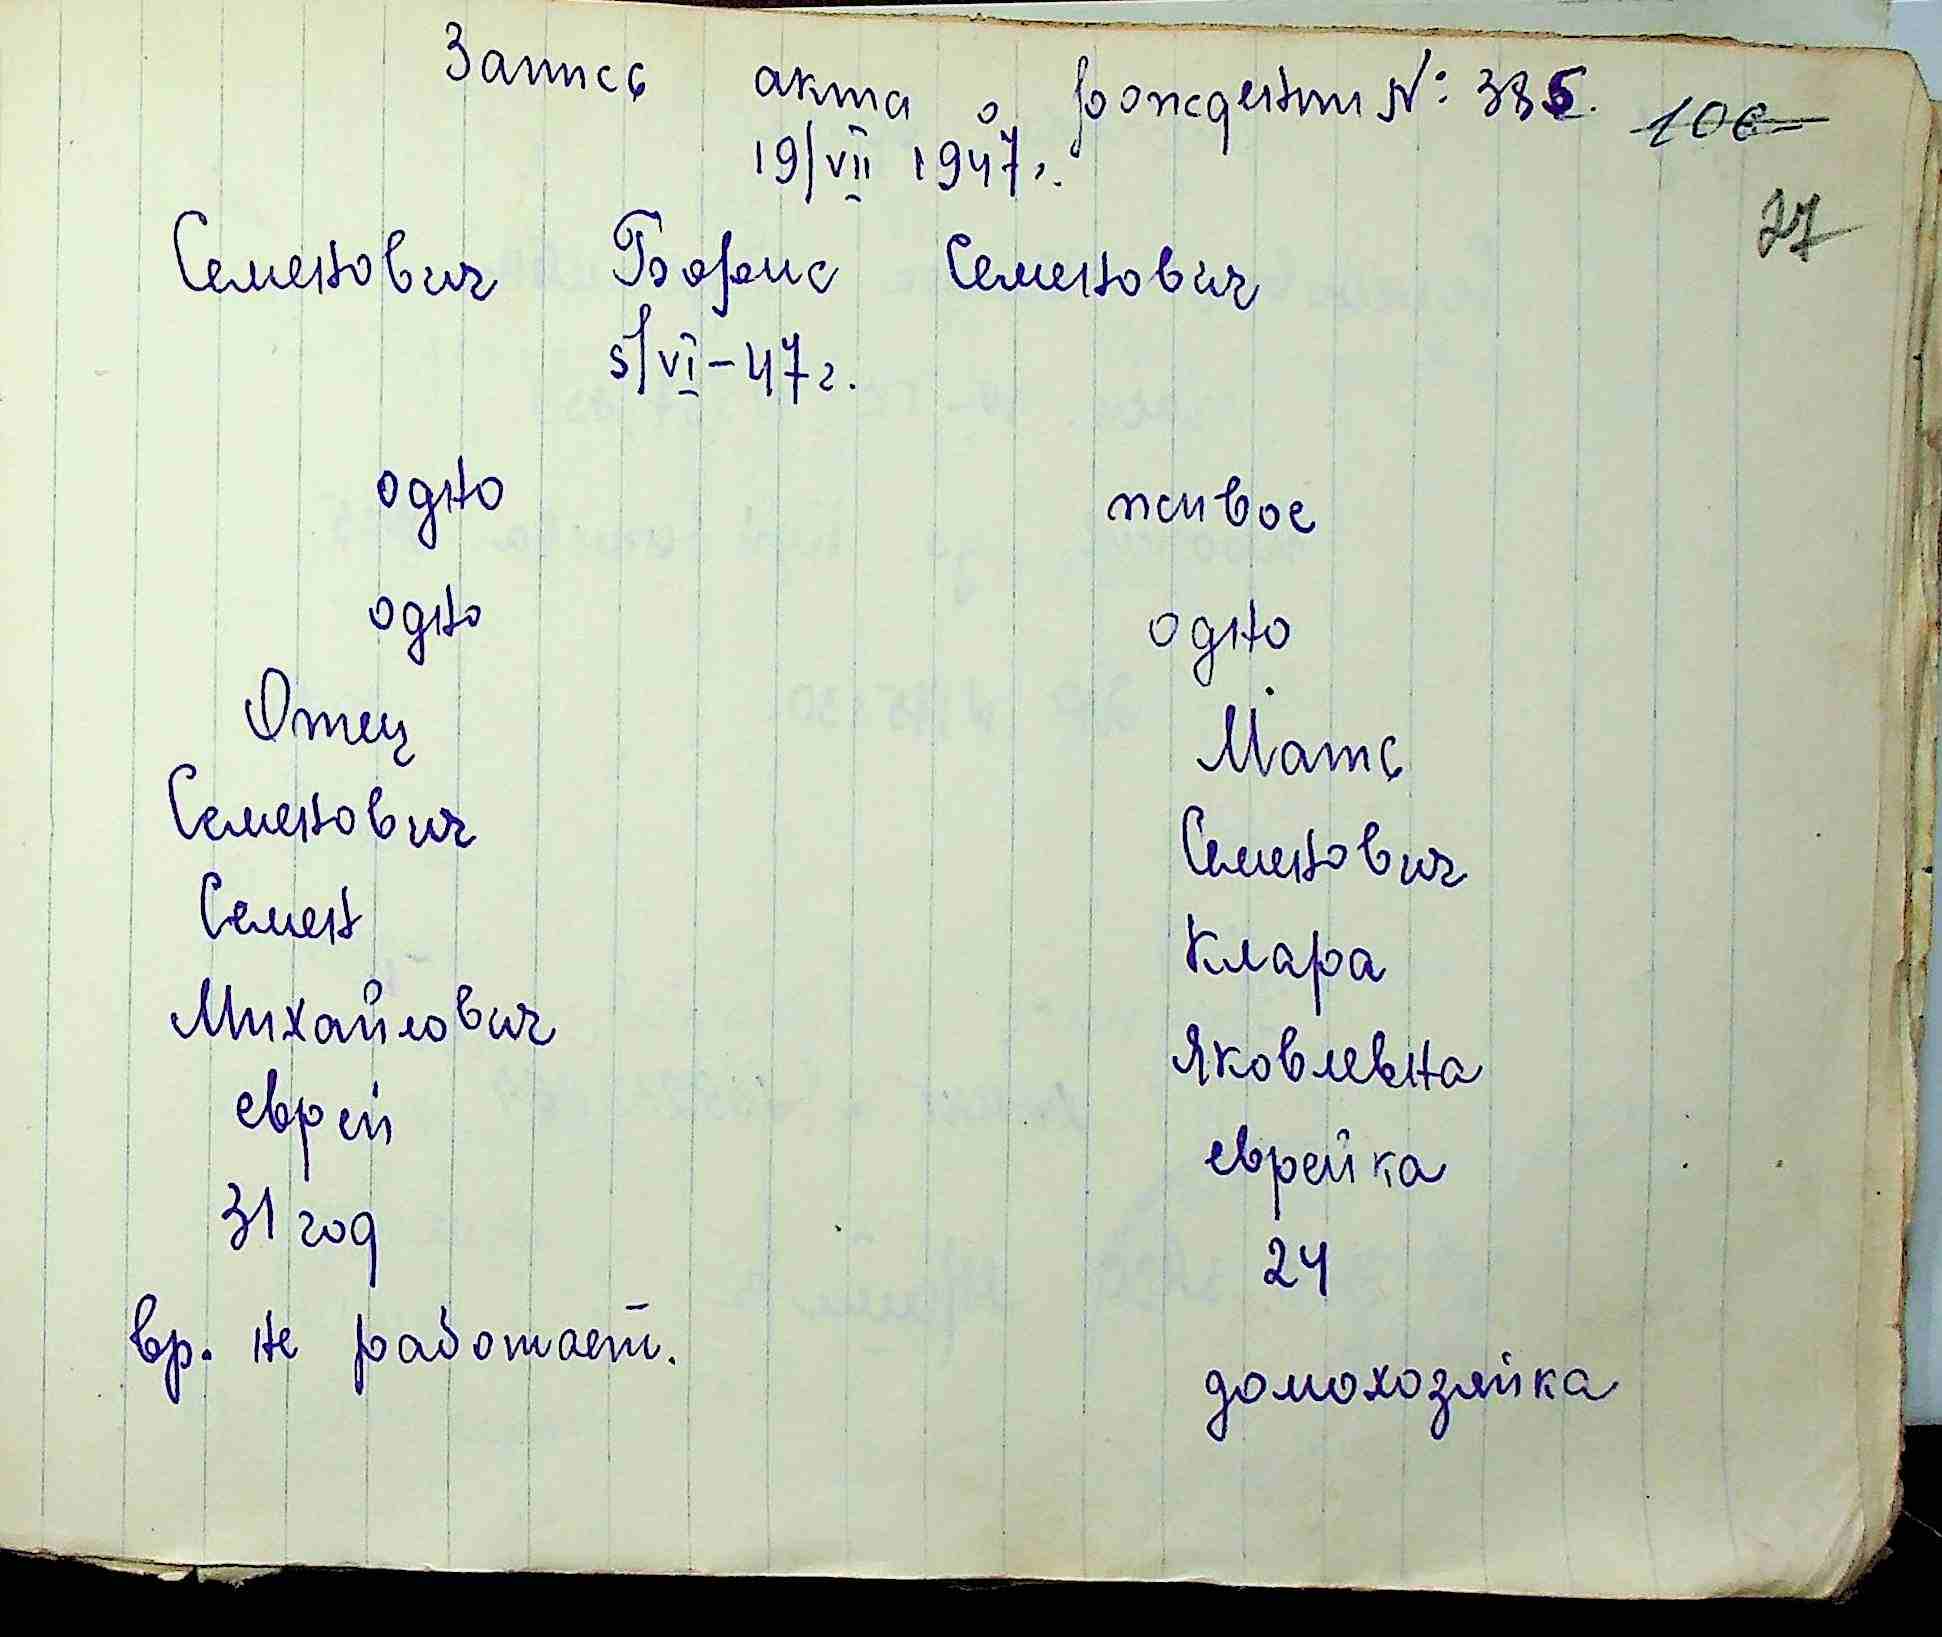 Запись акта о рождении №: 385.
106
19/VII 1947 г.
27
Семенович Борис Семенович
5/VI-47 г.
одно живое
одно одно
Отец Мать
Семенович Семенович
Семен Клара
Михайлович Яковлевна
еврей еврейка
31 год 24
вр. не работает. домохозяйка